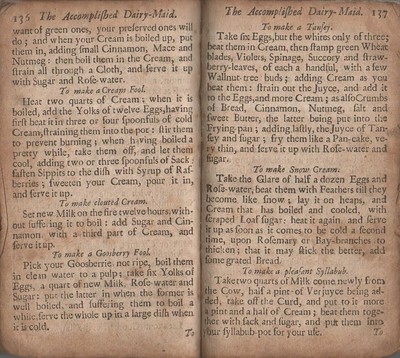 136 The Accompliſhed Dairy-Maid.
want of green ones, your preferred ones will
do; and when your Cream is boiled up, put
them in, adding ſmall Cinnamon, Mace and
Nutmeg: then boil them in the Cream, and
ſtrain all through a Cloth, and ſerve it up
with Sugar and Roſe-water.
To make a Cream Fool.
Heat two quarts of Cream; when it is
boiled, add the Yolks of twelve Eggs, having
firſt beat it in three or four ſpoonfuls of cold
Cream, ſtraining them into the pot: ſtir them
to prevent burning; when having boiled a
pretty while, take them off, and let them
cool, adding two or three ſpoonfuls of Sack
faſten Sippits to the diſh with Syrup of Raſ-
berries; ſweeten your Cream, pour it in,
and ſerve it up.
To make clouted Cream.
Set new Milk on the fire twelve hours, with-
out ſuffering it to boil: add Sugar and Cin-
namon, with a third part of Cream, and
ſerve it up.
To make a Gooſberry Fool,
Pick your Gooſberries not ripe, boil them
in clean water to a pulp: take ſix Yolks of
Eggs, a quart of new Milk, Roſe-water and
Sugar: put the latter in when the former is
well boiled, and ſuffering them to boil a
while, ſerve the whole up in a large diſh when
it is cold.
To
The Accompliſhed Dairy-Maid. 137
To make a Tanſey.
Take ſix Eggs, but the whites only of three;
beat them in Cream, then ſtamp green Wheat
blades, Violets, Spinage, Succory and ſtraw-
berry-leaves, of each a handful, with a few
Wallnut-tree buds; adding Cream as you
beat them: ſtrain out the Juyce, and add it
to the Eggs, and more Cream; as alſo Crumbs
of Bread, Cinnamon, Nutmeg, ſalt and
ſweet Butter, the latter being put into the
Frying-pan; adding laſtly, the Juyce of Tan-
ſey and ſugar; fry them like a Pan-cake, ve-
ry thin, and ſerve it up with Roſe-water and
ſugar.
To make Snow Cream.
Take the Glare of half a dozen Eggs and
Roſe-water, beat them with Feathers till they
become like ſnow; lay it on heaps, and
Cream that has boiled and cooled, with
ſcraped Loaf ſugar: heat it again and ſerve
it up as ſoon as it comes to be cold a ſecond
time, upon Roſemary or Bay-branches to
thicken; that it may ſtick the better, add
ſome grated Bread.
To make a pleaſant Syllabub.
Take two quarts of Milk come newly from
the Cow, half a pint of Verjuyce being ad-
ded, take off the Curd, and put to it more
a pint and a half of Cream; beat them toge-
ther with ſack and ſugar, and put them into
our ſyllabub-pot for your uſe.
To